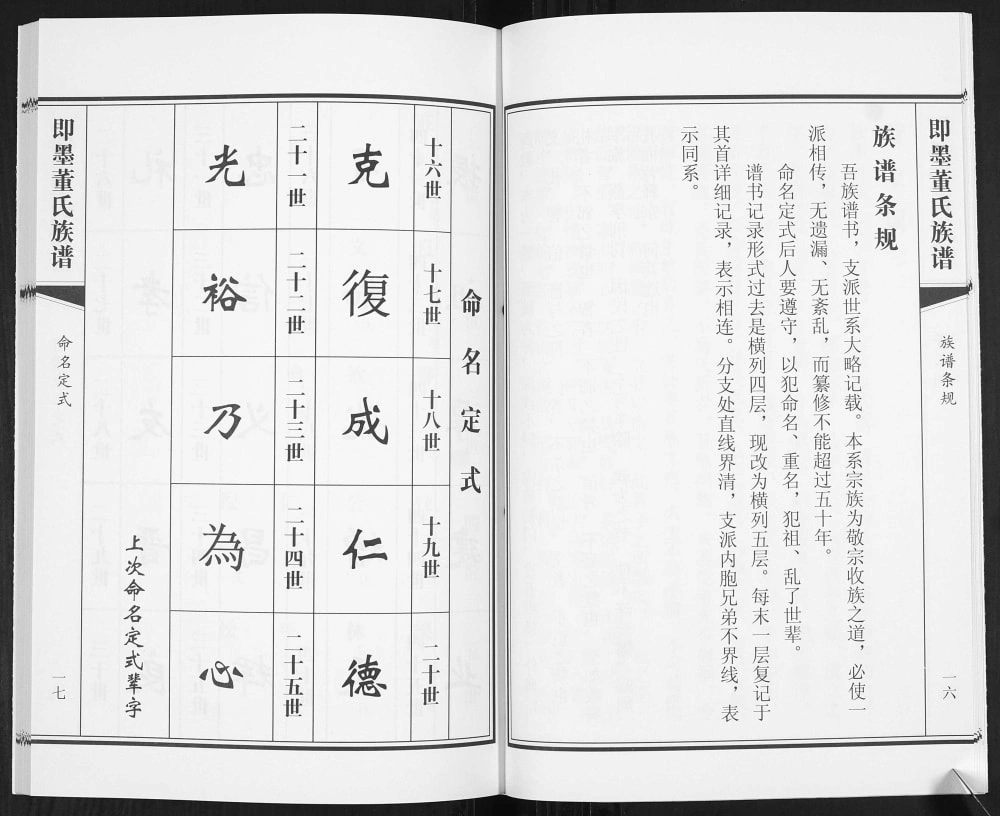 即墨董氏族谱
族谱条规
一六
族谱条规
吾族谱书，支派世系大略记载。本系宗族为敬宗收族之道，必使一
派相传，无遗漏、无紊乱，而纂修不能超过五十年。
命名定式后人要遵守，以犯命名、重名，犯祖、乱了世辈。
谱书记录形式过去是横列四层，现改为横列五层。每末一层复记于
其首详细记录，表示相连。分支处直线界清，支派内胞兄弟不界线，表
示同系。
命名定式
十六世
十七世
十八世
十九世
二十世
克
復
成
仁
德
二十一世
二十二世
二十三世
二十四世
二十五世
光
裕
乃
為
心
上次命名定式辈字
即墨董氏族谱
命名定式
一七